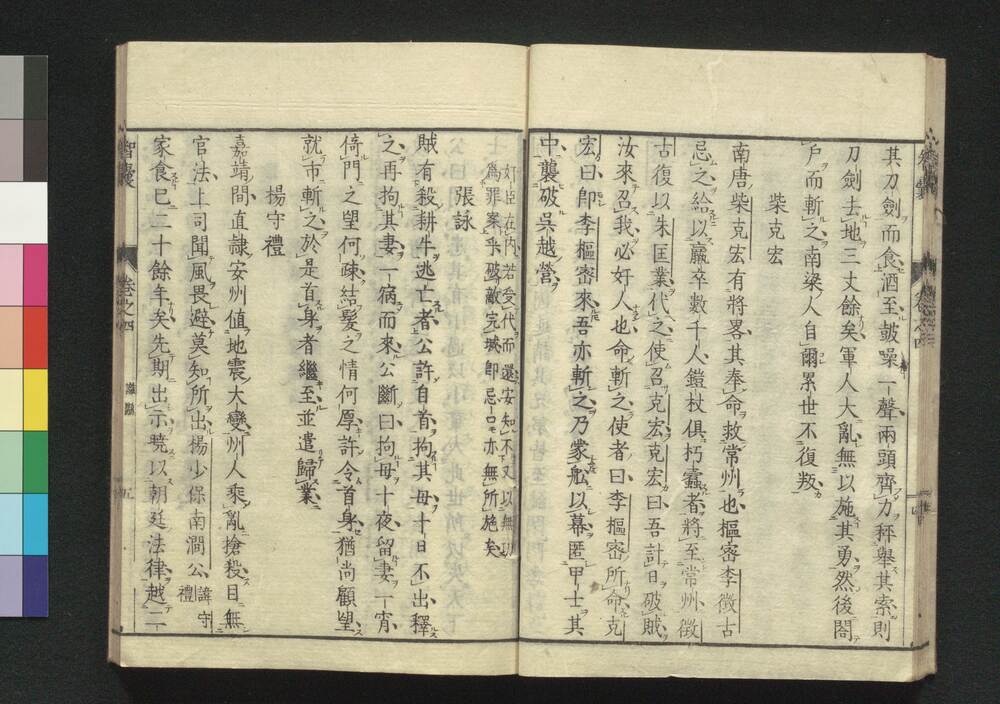 其刀劍而食酒至皷噪一聲兩頭齊力秤舉其索則
刀劍去地三丈餘矣軍人大亂無以施其勇然後閤
戶而斬之南梁人自爾累世不復叛
柴克宏
南唐柴克宏有將畧其奉命救常州也樞密李徵古
忌之給以羸卒數千人鎧杖俱朽蠹者將至常州徵
古復以朱匡業代之使召克宏克宏曰吾計日破賊
汝來召我必奸人也命斬之使者曰李樞密所命克
宏曰卽李樞密來吾亦斬之乃蒙船以幕匿甲士其
中襲破吳越營
奸臣在內若受代而還安知不又以無功
爲罪案乎破敵完城卽忌口亦無所施矣
張詠
賊有殺耕牛逃亡者公許自首拘其母十日不出釋
之再拘其妻一宿而來公斷曰拘母十夜留妻一宵
倚門之望何疎結髮之情何厚許令首身猶尚顧望
就市斬之於是首身者繼至並遣歸業
楊守禮
嘉靖間直隷安州值地震大變州人乘亂搶殺目無
官法上司聞風畏避莫知所出楊少保南澗公諱守禮
家食已二十餘年矣先期出示曉以朝廷法律越二
智囊
卷之四
五